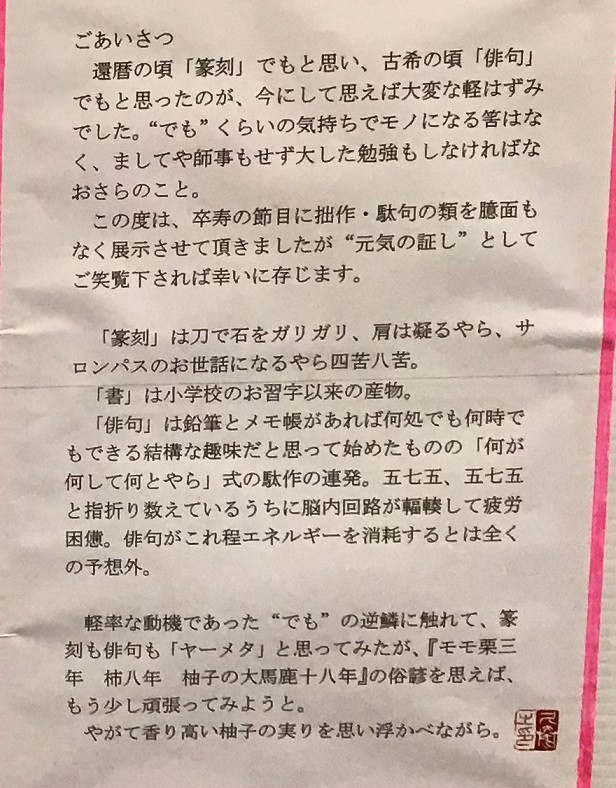 ごあいさつ
還暦の頃「篆刻」でもと思い、古希の頃「俳句」
でもと思ったのが、今にして思えば大変な軽はずみ
でした。“でも”くらいの気持ちでモノになる筈はな
く、ましてや師事もせず大した勉強もしなければな
おさらのこと。
この度は、卒寿の節目に拙作・駄句の類を臆面も
なく展示させて頂きましたが“元気の証し”として
ご笑覧下されば幸いに存じます。
「篆刻」は刀で石をガリガリ、肩は凝るやら、サ
ロンパスのお世話になるやら四苦八苦。
「書」は小学校のお習字以来の産物。
「俳句」は鉛筆とメモ帳があれば何処でも何時で
もできる結構な趣味だと思って始めたものの「何が
何して何とやら」式の駄作の連発。五七五、五七五
と指折り数えているうちに脳内回路が輻輳して疲労
困憊。俳句がこれ程エネルギーを消耗するとは全く
の予想外。
軽率な動機であった“でも”の逆鱗に触れて、篆
刻も俳句も「ヤーメタ」と思ってみたが、『モモ栗三
年　柿八年　柚子の大馬鹿十八年』の俗諺を思えば、
もう少し頑張ってみようと。
やがて香り高い柚子の実りを思い浮かべながら。